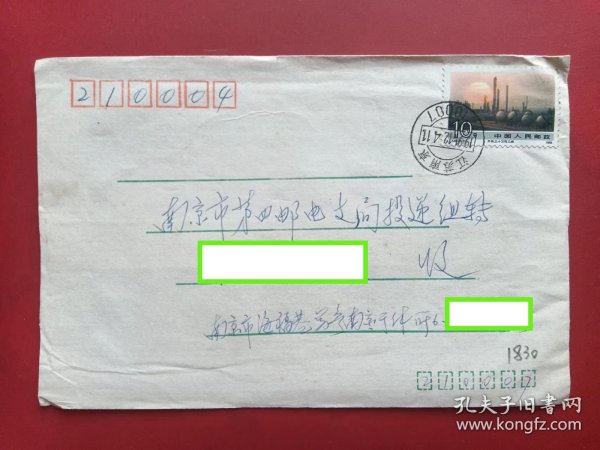 210004
10分
中国人民邮政
江苏南京
南京市第四邮电支局投递组转
收
南京市海福巷
1830
210007
孔夫子旧书网
www.kongfz.com